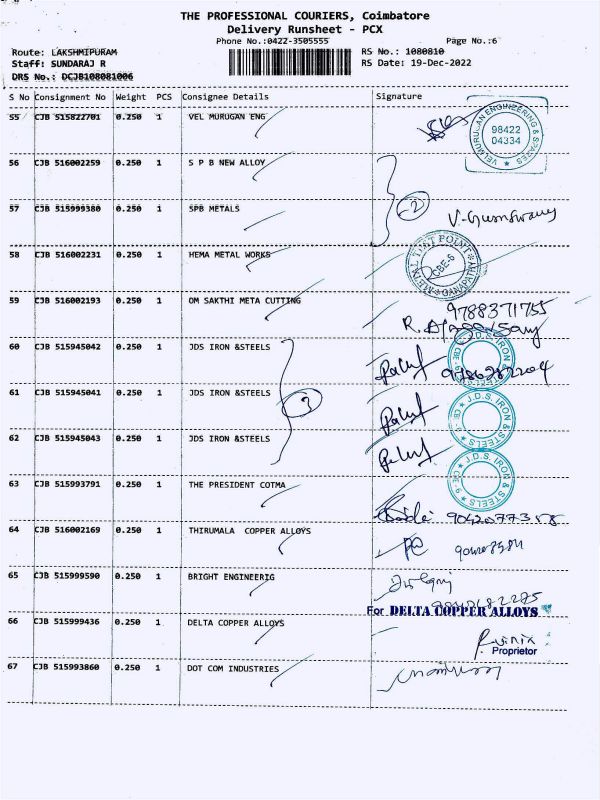 THE PROFESSIONAL COURIERS, Coimbatore
Delivery Runsheet - PCX
Phone No.:0422-3505555 Page No.:6
Route: LAKSHMIPURAM RS No.: 1080810
Staff: SUNDARAJ R RS Date: 19-Dec-2022
DRS No.: DCJB108081006
S No Consignment No Weight PCS Consignee Details Signature
55 CJB 515822701 0.250 1 VEL MURUGAN ENG
VELMURUGAN ENGINEERING & SPARES
98422
04334
56 CJB 516002259 0.250 1 S P B NEW ALLOY
2
57 CJB 515999380 0.250 1 SPB METALS
58 CJB 516002231 0.250 1 HEMA METAL WORKS
CBE-6
GANAPATHY
59 CJB 516002193 0.250 1 OM SAKTHI META CUTTING
9788371755
60 CJB 515945042 0.250 1 JDS IRON &STEELS
J.D.S. IRON & STEELS
61 CJB 515945041 0.250 1 JDS IRON &STEELS
3
J.D.S. IRON & STEELS
62 CJB 515945043 0.250 1 JDS IRON &STEELS
J.D.S. IRON & STEELS
63 CJB 515993791 0.250 1 THE PRESIDENT COTMA
9042077358
64 CJB 516002169 0.250 1 THIRUMALA COPPER ALLOYS
65 CJB 515999590 0.250 1 BRIGHT ENGINEERIG
For DELTA COPPER ALLOYS
66 CJB 515999436 0.250 1 DELTA COPPER ALLOYS
Proprietor
67 CJB 515993860 0.250 1 DOT COM INDUSTRIES